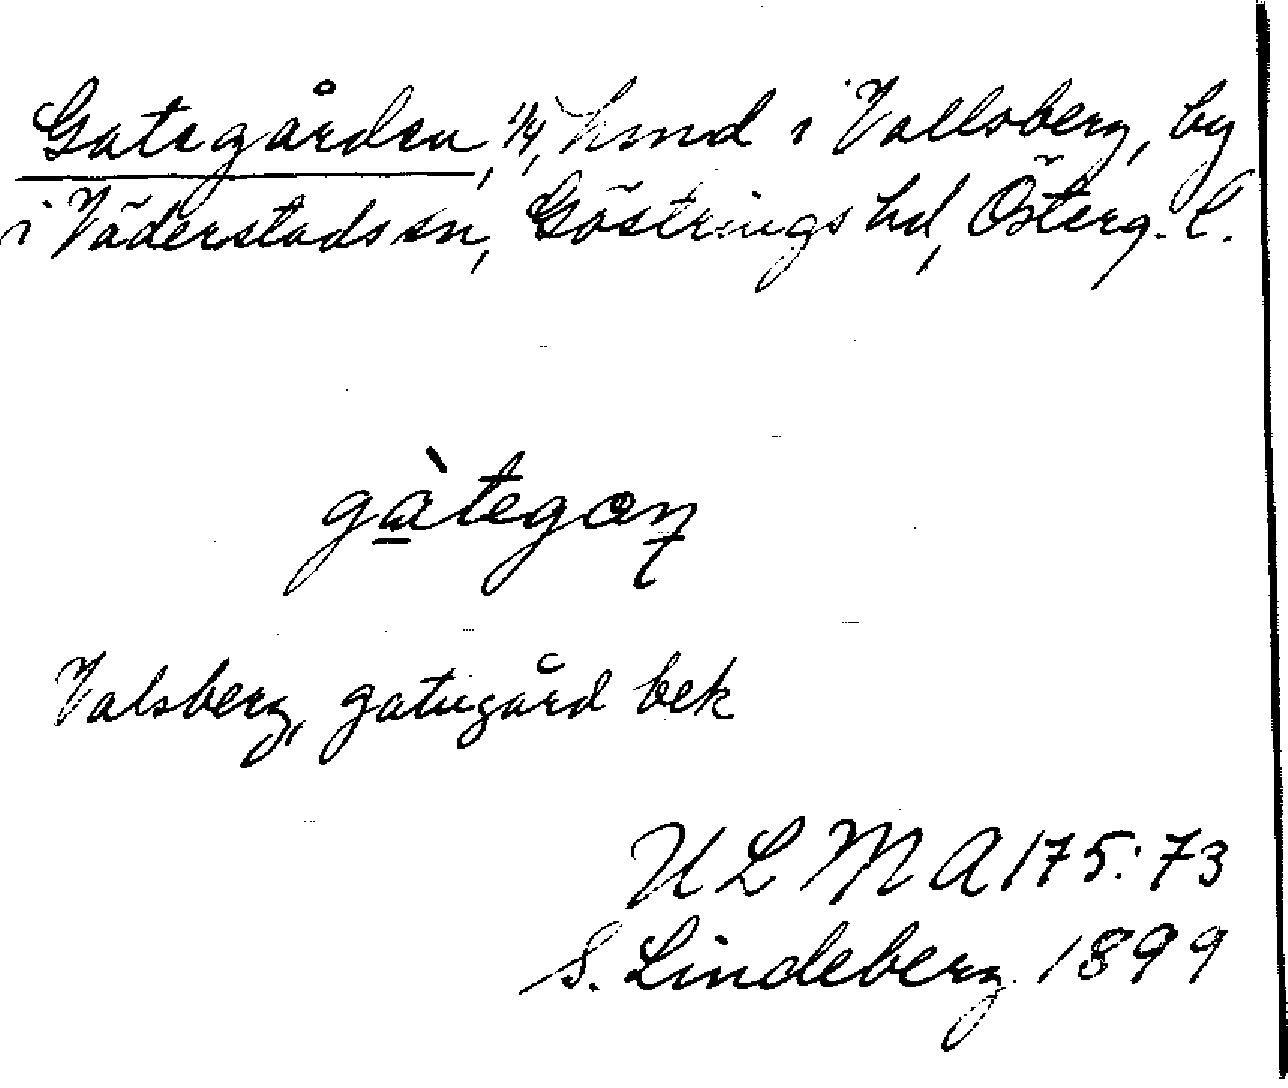 Gategården, 1/4, hmd i Vallsberg, by
i Väderstads sn, Göstrings hd, Österg. l.
gàtegoɳ
Valsberg, gategård bek
ULMA 175:73
S. Lindeberg 1899